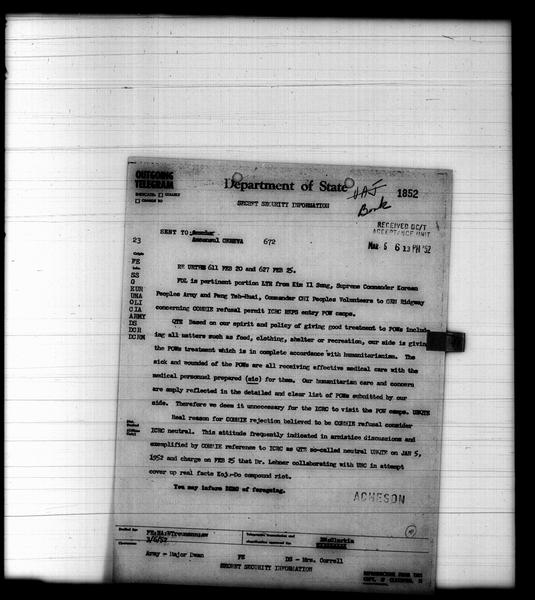 OUTGOING
TELEGRAM
Department of State
INDICATE: □ COLLECT
□ CHARGE TO
1852
SECRET SECURITY INFORMATION
Book
RECEIVED DC/T
ACCEPTANCE UNIT
MAR 6 6 13 PM '52
SENT TO:
Amconsul GENEVA 672
23
Origin
FE
Info.
SS
G
EUR
UNA
OLI
CIA
ARMY
DS
DCR
DCRM
RE URTELS 611 FEB 20 AND 627 FEB 25.
FOL is pertinent portion LTR from Kim Il Sung, Supreme Commander Korean
Peoples Army and Peng Teh-Huai, Commander CHI Peoples Volunteers to GEN Ridgway
concerning COMMIE refusal permit ICRC REPS entry POW camps.
QTE Based on our spirit and policy of giving good treatment to POWs includ-
ing all matters such as food, clothing, shelter or recreation, our side is giving
the POWs treatment which is in complete accordance with humanitarianism. The
sick and wounded of the POWs are all receiving effective medical care with the
medical personnel prepared (sic) for them. Our humanitarian care and concern
are amply reflected in the detailed and clear list of POWs submitted by our
side. Therefore we deem it unnecessary for the ICRC to visit the POW camps. UNQTE
Real reason for COMMIE rejection believed to be COMMIE refusal consider
ICRC neutral. This attitude frequently indicated in armistice discussions and
exemplified by COMMIE reference to ICRC as QTE so-called neutral UNQTE on JAN 5,
1952 and charge on FEB 25 that Dr. Lehner collaborating with UNC in attempt
cover up real facts Koje-Do compound riot.
You may inform ICRC of foregoing.
ACHESON
Drafted by:
3/6/52
Telegraphic transmission and
classification approved by:
Clearances:
Army - Major Dean FE DS - Mrs. Correll
SECRET SECURITY INFORMATION
REPRODUCTION FROM THIS
COPY, IF CLASSIFIED, IS